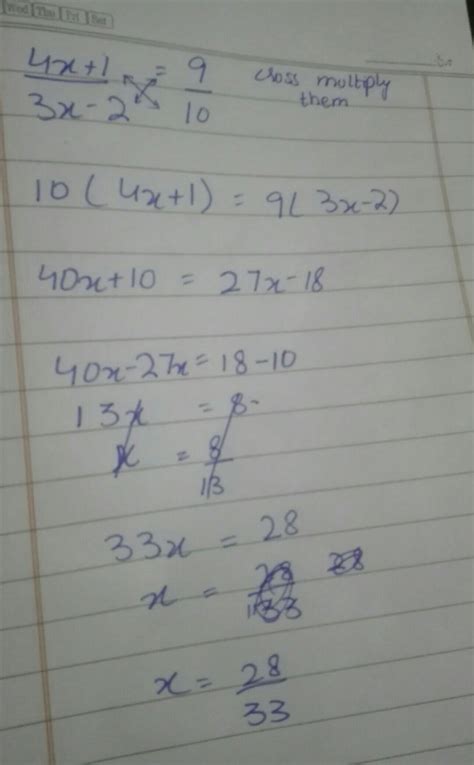 Wed Thu Fri Sat
4x+1 / 3x-2 = 9 / 10 cross multiply
them
10 ( 4x+1) = 9( 3x-2)
40x+10 = 27x-18
40x-27x=18-10
13x = 8
x = 8 / 13
33x = 28
x = 28 / 33 28
x = 28 / 33